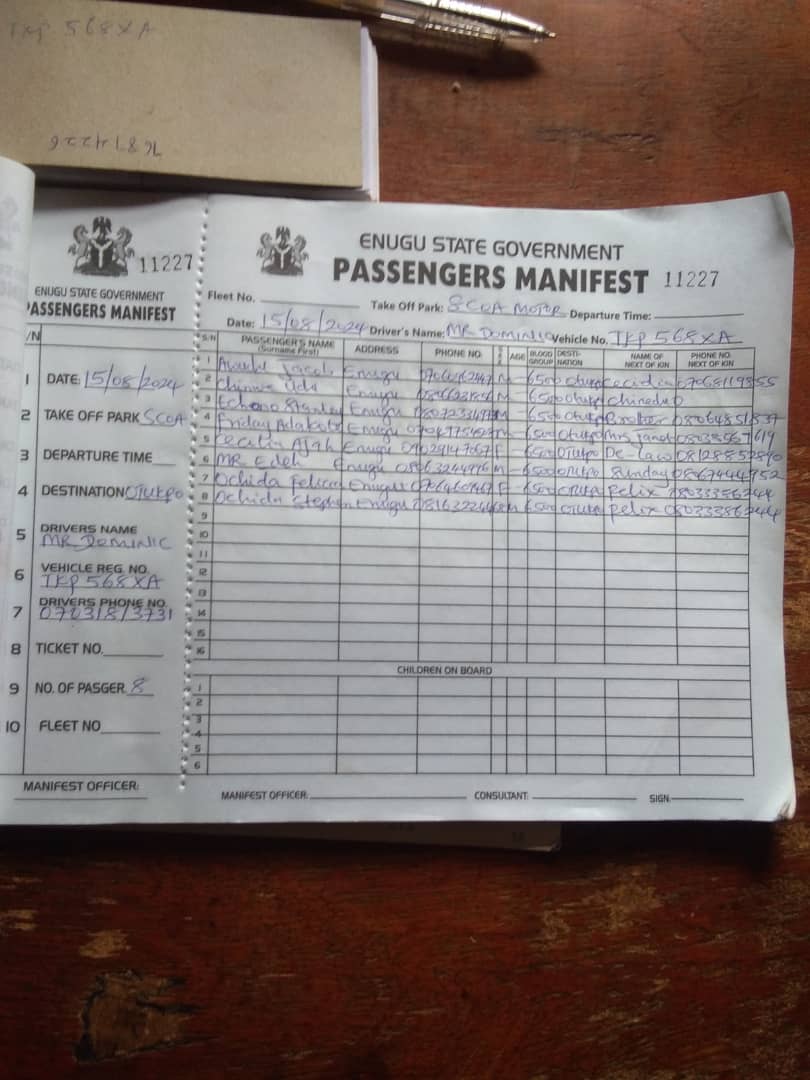 568XA
76814226
ENUGU STATE GOVERNMENT
PASSENGERS MANIFEST 11227
Fleet No. Take Off Park: SCOA MOTOR Departure Time:
Date: 15/08/2024 Driver's Name: MR DOMINIC Vehicle No. TKP 568XA
11227
ENUGU STATE GOVERNMENT
PASSENGERS MANIFEST
/N
1 DATE: 15/08/2024
2 TAKE OFF PARK SCOA
3 DEPARTURE TIME
4 DESTINATION OTUKPO
5 DRIVERS NAME
MR DOMINIC
6 VEHICLE REG. NO.
TKP 568XA
7 DRIVERS PHONE NO.
8 TICKET NO.
9 NO. OF PASGER. 8
10 FLEET NO
MANIFEST OFFICER:
S/N PASSENGER'S NAME (Surname First) ADDRESS PHONE NO. AGE BLOOD GROUP DESTINATION NAME OF NEXT OF KIN PHONE NO. NEXT OF KIN
1 Jacob Enugu M 6500 Otukpo Cecidia
2 Chinwe Enugu 6500 Otukpo Chinedu
3 Stanley Enugu M 6500 Otukpo Brother 08064851837
4 Friday Enugu M 6500 Otukpo Mrs Janet
5 Cecilia Ajah Enugu F 6500 Otukpo De-law
6 MR Edeh Enugu M 6500 Otukpo Sunday
7 Ochida Felicia Enugu F 6500 Otukpo Felix
8 Ochida Stephen Enugu M 6500 Otukpo Felix
9
10
11
12
13
14
15
16
CHILDREN ON BOARD
1
2
3
4
5
6
MANIFEST OFFICER: CONSULTANT: SIGN.